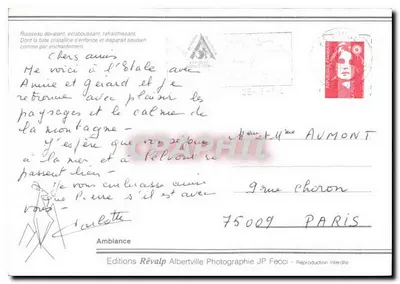 Ruisseau dévalant, éclaboussant, rafraîchissant.
Dont la fuite cristalline s'enfonce et disparaît soudain
comme par enchantement.
Chers amis
Me voici à l'Étale avec
Annie et Gérard et je
retrouve avec plaisir les
paysages et le calme de
la montagne -
J'espère que vos séjours
à la mer, et à Pelvoux se
passent bien -
Je vous embrasse ainsi
que Pierre s'il est avec
vous -
Charlotte
Mr et Mme AUMONT
9 rue Choron
75009 PARIS
Ambiance
Editions Révalp Albertville Photographie JP Fecci - Reproduction interdite